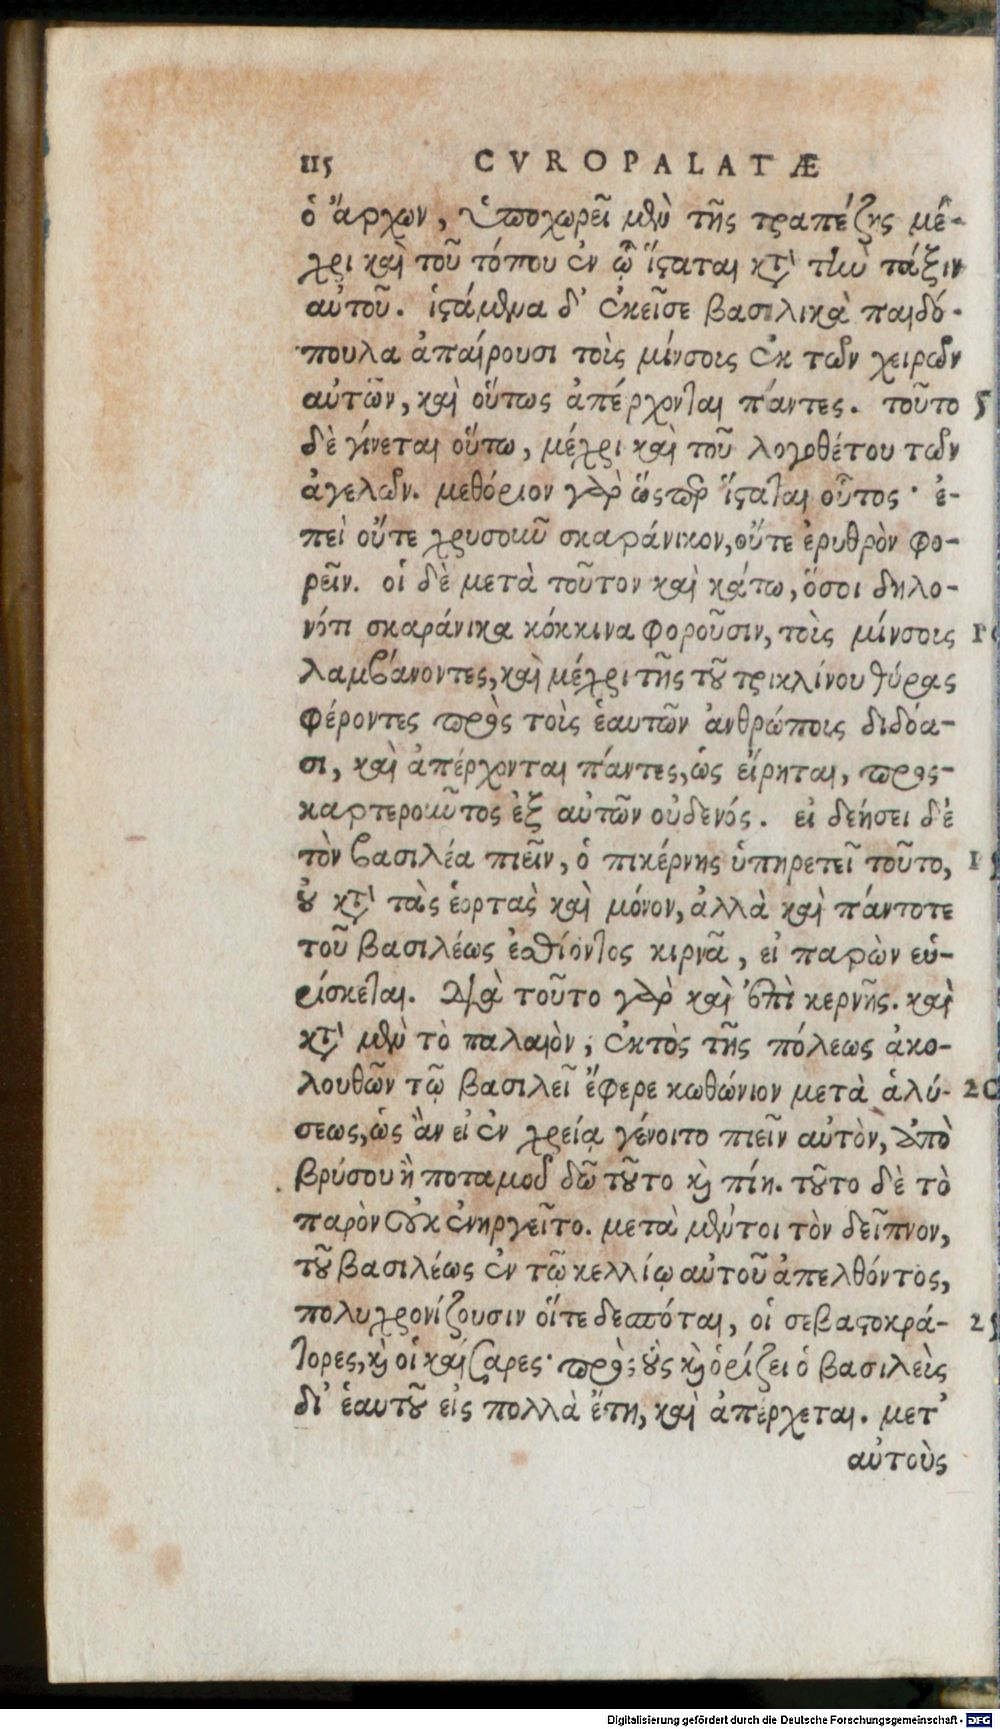 115 CVROPALATÆ
ὁ ἄρχων, ὑποχωρεῖ μὲν τῆς τραπέζης μέ-
χρι καὶ τοῦ τόπου ἐν ᾧ ἵσταται κατὰ τὴν τάξιν
αὐτοῦ. ἱστάμενα δ' ἐκεῖσε βασιλικὰ παιδό-
πουλα ἀπαίρουσι τοὶς μίνσοις ἐκ τῶν χειρῶν
αὐτῶν, καὶ οὕτως ἀπέρχονται πάντες. τοῦτο 5
δὲ γίνεται οὕτω, μέχρι καὶ τοῦ λογοθέτου τῶν
ἀγελῶν. μεθόριον γὰρ ὥσπερ ἵσταται οὗτος· ἐ-
πεὶ οὔτε χρυσοῦν σκαράνικον, οὔτε ἐρυθρὸν φο-
ρεῖν. οἱ δὲ μετὰ τοῦτον καὶ κάτω, ὅσοι δηλο-
νότι σκαράνικα κόκκινα φοροῦσιν, τοὶς μίνσοις 10
λαμβάνοντες, καὶ μέχρι τῆς τοῦ τρικλίνου θύρας
φέροντες πρὸς τοὶς ἑαυτῶν ἀνθρώποις διδόα-
σι, καὶ ἀπέρχονται πάντες, ὡς εἴρηται, προσ-
καρτεροῦντος ἐξ αὐτῶν οὐδενός. εἰ δεήσει δὲ
τὸν βασιλέα πιεῖν, ὁ πικέρνης ὑπηρετεῖ τοῦτο, 15
οὐ κατὰ τὰς ἑορτὰς καὶ μόνον, ἀλλὰ καὶ πάντοτε
τοῦ βασιλέως ἐσθίοντος κιρνᾶ, εἰ παρὼν εὑ-
ρίσκεται. διὰ τοῦτο γὰρ καὶ ἐπὶ κερνῆς. καὶ
κατὰ μὲν τὸ παλαιὸν, ἐκτὸς τῆς πόλεως ἀκο-
λουθῶν τῷ βασιλεῖ ἔφερε κωθώνιον μετὰ ἁλύ- 20
σεως, ὡς ἂν εἰ ἐν χρείᾳ γένοιτο πιεῖν αὐτὸν, ἀπὸ
βρύσου ἢ ποταμοῦ δῶ τοῦτο καὶ πίῃ. τοῦτο δὲ τὸ
παρὸν οὐκ ἐνηργεῖτο. μετὰ μέντοι τὸν δεῖπνον,
τοῦ βασιλέως ἐν τῷ κελλίῳ αὐτοῦ ἀπελθόντος,
πολυχρονίζουσιν οἵτε δεσπόται, οἱ σεβαστοκρά- 25
τορες, καὶ οἱ καίσαρες· πρὸς οὓς καὶ ὁρίζει ὁ βασιλεὶς
δι' ἑαυτοῦ εἰς πολλὰ ἔτη, καὶ ἀπέρχεται. μετ'
αὐτοὺς
Digitalisierung gefördert durch die Deutsche Forschungsgemeinschaft - DFG